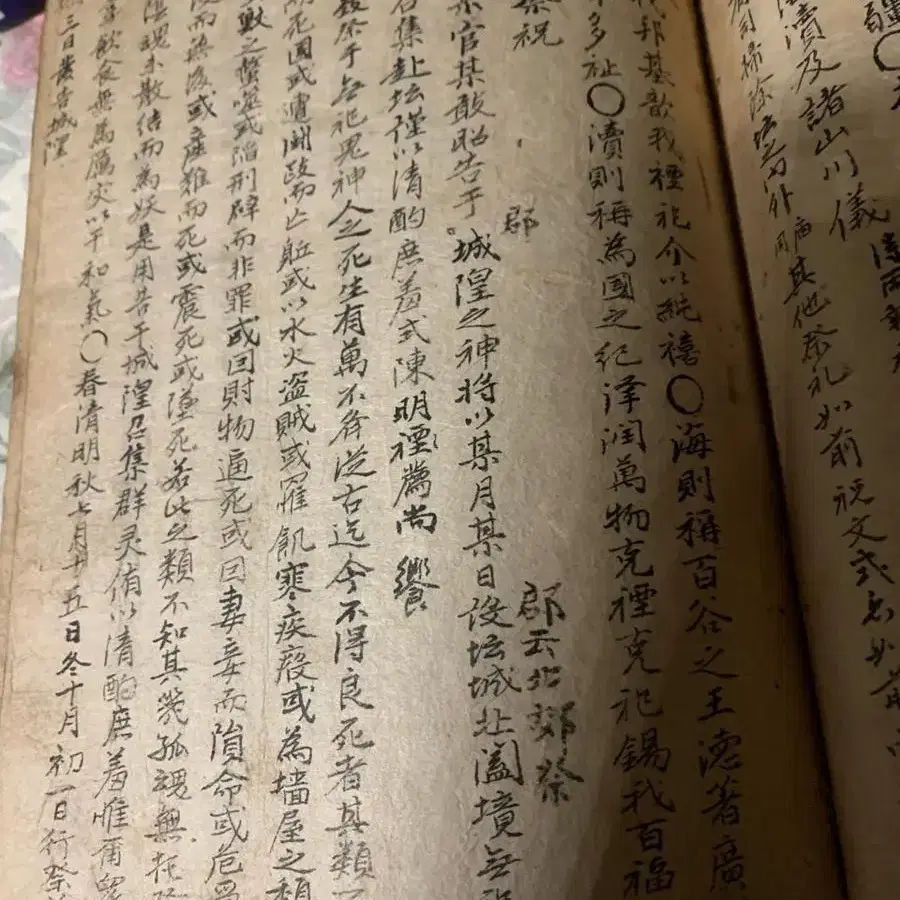 及諸山川儀
其他祭礼如前祝文式
掃除坛之內外
我邦基歆我禋祀介以純禧〇海則稱百谷之王德著廣
多祉〇瀆則稱為國之紀澤润萬物克禋克祀錫我百福
祭祝
郡云北郊祭
郡
官某敢昭告于城隍之神将以某月某日設坛城北闔境無
召集赴坛僅以清酌庶羞式陳明禋薦尚饗
祭于無祀鬼神人之死生有萬不仝從古迄今不得良死者其類
而死國或遭鬪敺而亡躯或以水火盗賊或罹飢寒疾疫或為墙屋之
獸之螫噬或陷刑辟而非罪或因財物逼死或因妻妾而隕命或危
而無後或産難而死或震死或墜死若此之類不知其幾孤魂無托
魂未散结而為妖是用告于城隍召集群灵侑以清酌庶羞惟爾
飲食無為厲灾以干和氣〇春清明秋七月十五日冬十月初一日行祭
三日發告城隍